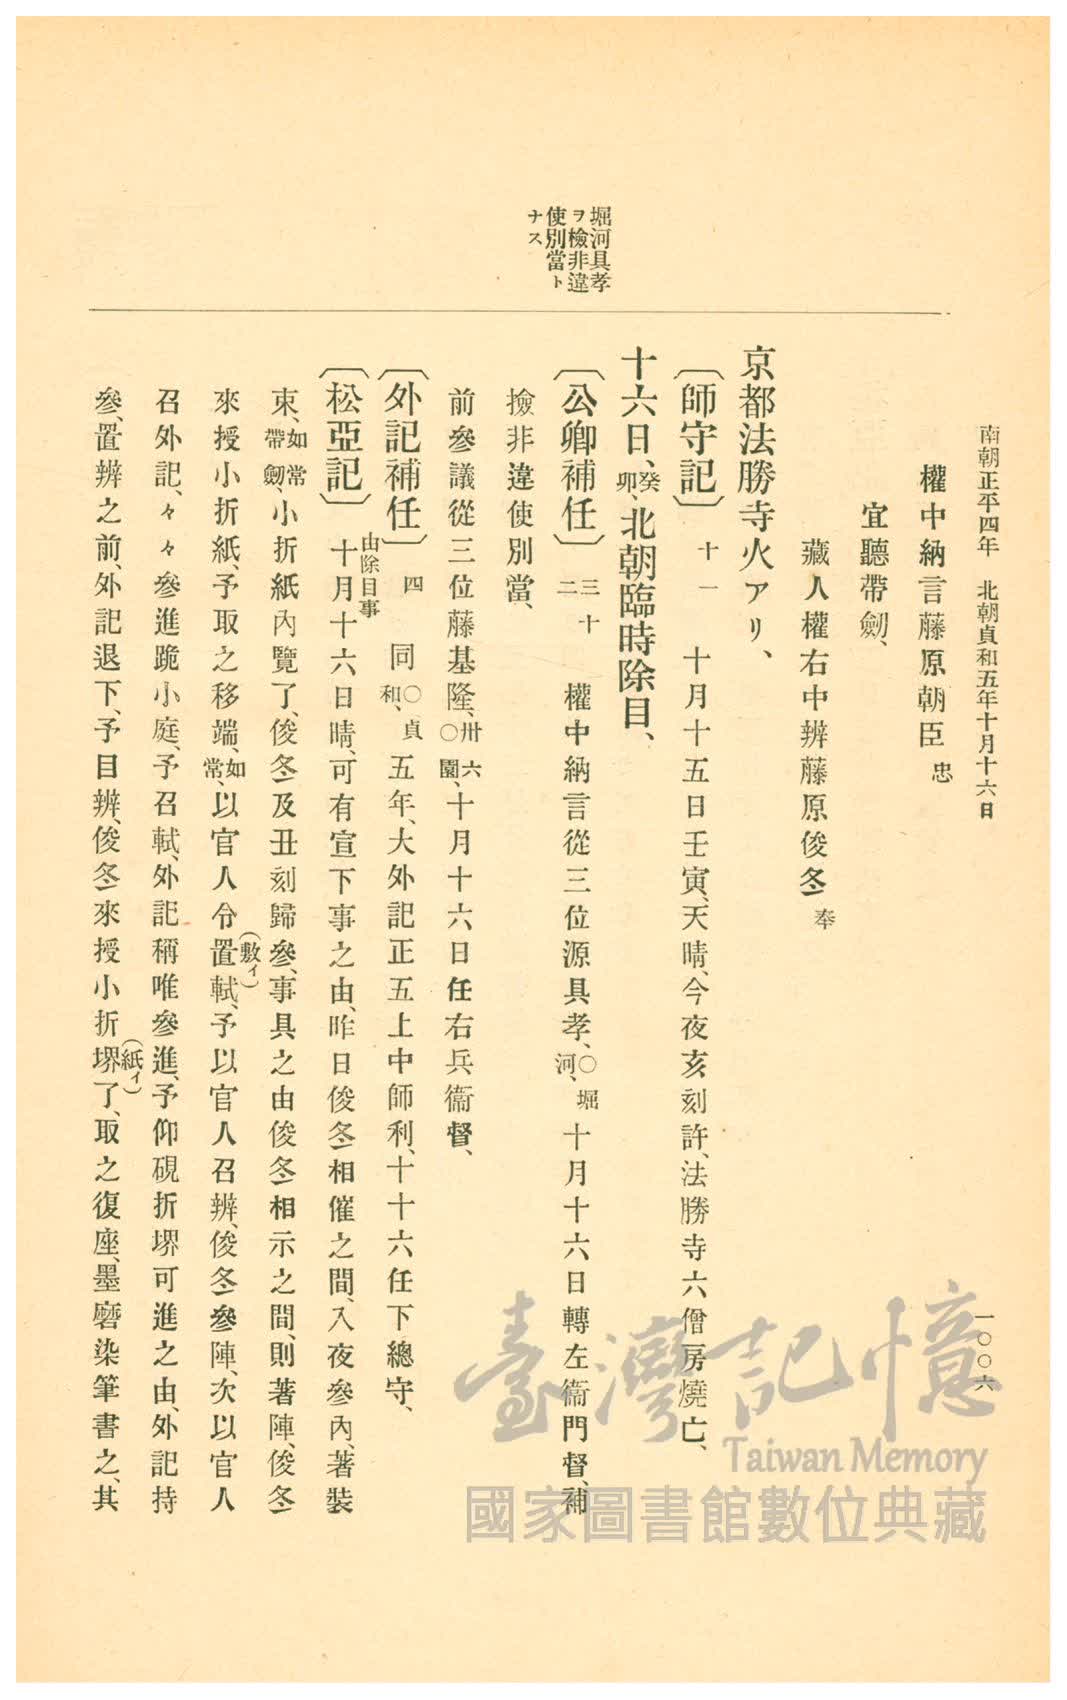 南朝正平四年 北朝貞和五年十月十六日
一〇〇六
權中納言藤原朝臣忠
宜聽帶劒、
藏人權右中辨藤原俊冬奉
京都法勝寺火アリ、
〔師守記〕十一 十月十五日壬寅、天晴、今夜亥刻許、法勝寺六僧房燒亡、
十六日、癸卯、北朝臨時除目、
堀河具孝
ヲ檢非違
使別當ト
ナス
〔公卿補任〕三十二 權中納言從三位源具孝、〇堀河、十月十六日轉左衞門督、補
撿非違使別當、
前參議從三位藤基隆、〇園、卅六十月十六日任右兵衞督、
〔外記補任〕四 同〇貞和、五年、大外記正五上中師利、十十六任下總守、
〔松亞記〕十月十六日晴、可有宣下事之由、昨日俊冬相催之間、入夜參內、著裝
由除目事
束、如常帶劒、小折紙內覽了、俊冬及丑刻歸參、事具之由俊冬相示之間、則著陣、俊冬
來授小折紙、予取之移端、如常、以官人令置軾、予以官人召辨、俊冬參陣、次以官人
(敷イ)
召外記、々々參進跪小庭、予召軾、外記稱唯參進、予仰硯折堺可進之由、外記持
參、置辨之前、外記退下、予目辨、俊冬來授小折堺了、取之復座、墨磨染筆書之、其
(紙イ)
臺灣記憶
Taiwan Memory
國家圖書館數位典藏